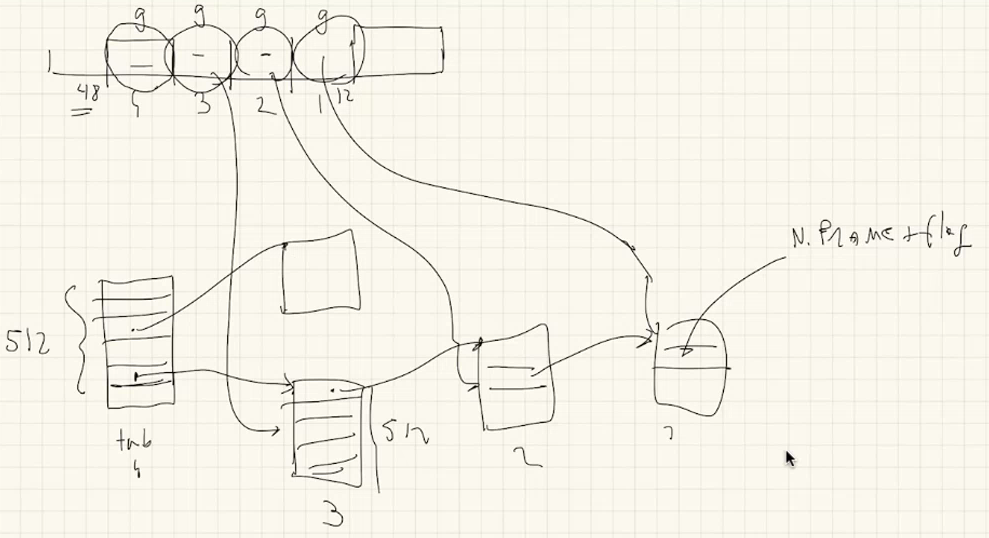 9 9 9 9
48 4 3 2 1 12
N. FRAME + flag
512
512
tab
4
3
2
1